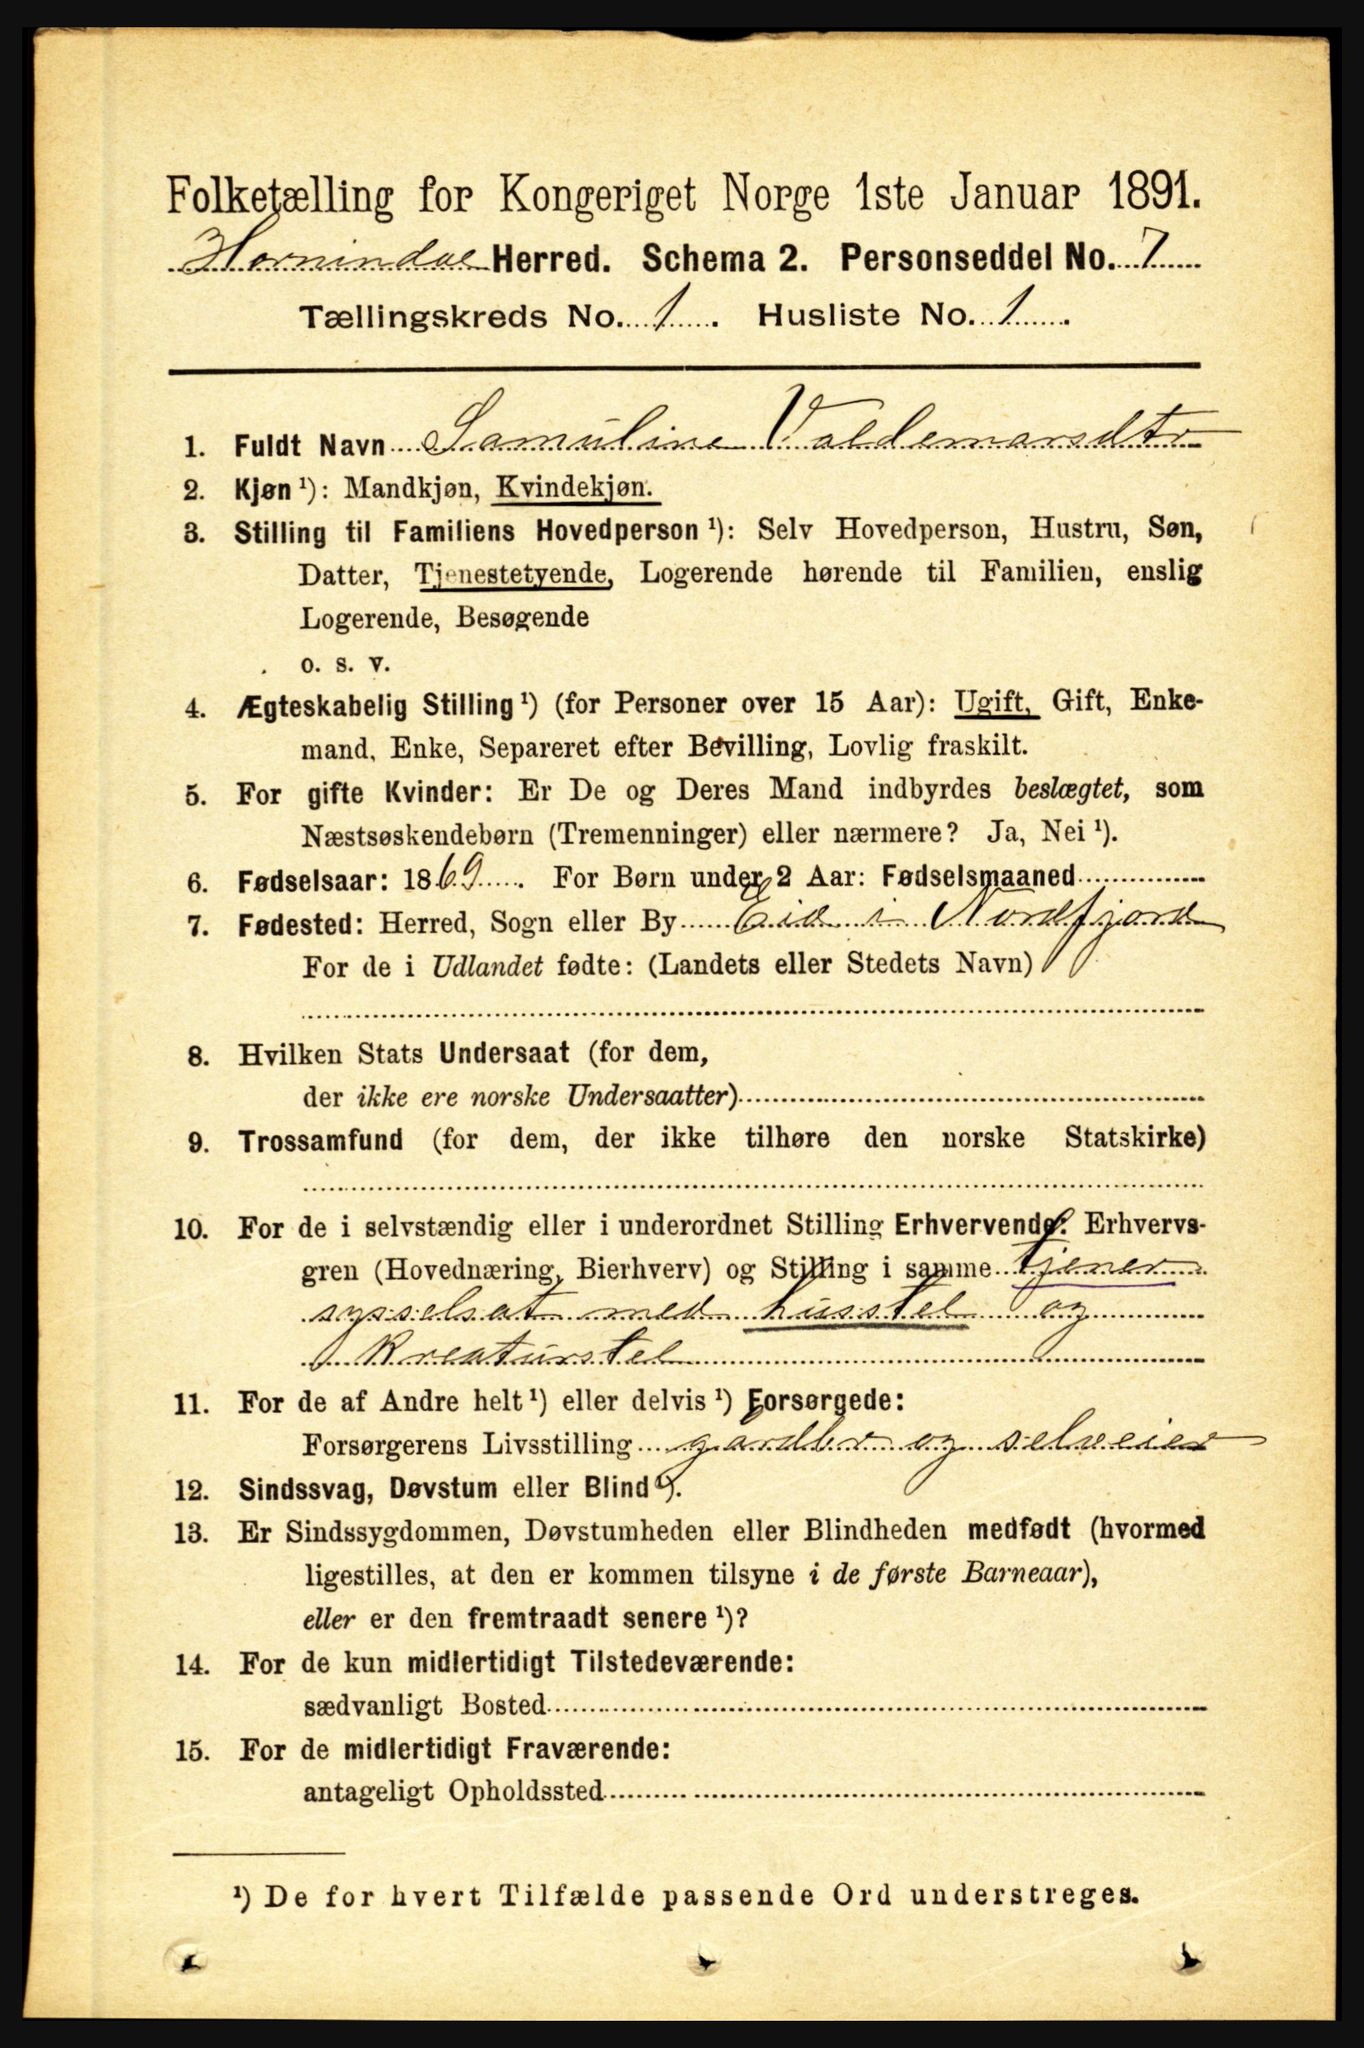 Folketælling for Kongeriget Norge 1ste Januar 1891.
Hornindal Herred. Schema 2. Personseddel No. 7
Tællingskreds No. 1. Husliste No. 1.
1. Fuldt Navn Samuline Valdemarsdtr
2. Kjøn ¹): Mandkjøn, Kvindekjøn.
3. Stilling til Familiens Hovedperson ¹): Selv Hovedperson, Hustru, Søn,
Datter, Tjenestetyende, Logerende hørende til Familien, enslig
Logerende, Besøgende
o. s. v.
4. Ægteskabelig Stilling ¹) (for Personer over 15 Aar): Ugift, Gift, Enke-
mand, Enke, Separeret efter Bevilling, Lovlig fraskilt.
5. For gifte Kvinder: Er De og Deres Mand indbyrdes beslægtet, som
Næstsøskendebørn (Tremenninger) eller nærmere? Ja, Nei ¹).
6. Fødselsaar: 1869. For Børn under 2 Aar: Fødselsmaaned
7. Fødested: Herred, Sogn eller By Eid i Nordfjord
For de i Udlandet fødte: (Landets eller Stedets Navn)
8. Hvilken Stats Undersaat (for dem,
der ikke ere norske Undersaatter)
9. Trossamfund (for dem, der ikke tilhøre den norske Statskirke)
10. For de i selvstændig eller i underordnet Stilling Erhvervende: Erhvervs-
gren (Hovednæring, Bierhverv) og Stilling i samme tjener
sysselsat med husstel og
kreaturstel
11. For de af Andre helt ¹) eller delvis ¹) Forsørgede:
Forsørgerens Livsstilling gardbr og selveier
12. Sindssvag, Døvstum eller Blind ¹).
13. Er Sindssygdommen, Døvstumheden eller Blindheden medfødt (hvormed
ligestilles, at den er kommen tilsyne i de første Barneaar),
eller er den fremtraadt senere ¹)?
14. For de kun midlertidigt Tilstedeværende:
sædvanligt Bosted
15. For de midlertidigt Fraværende:
antageligt Opholdssted
¹) De for hvert Tilfælde passende Ord understreges.